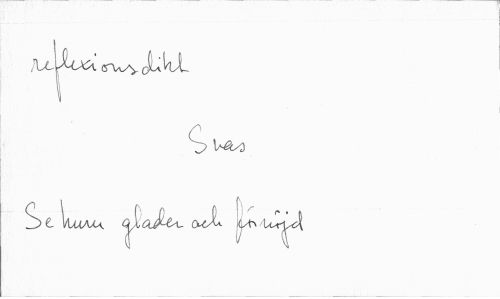 reflexionsdikt
Svas
Se huru glader och förnöjd